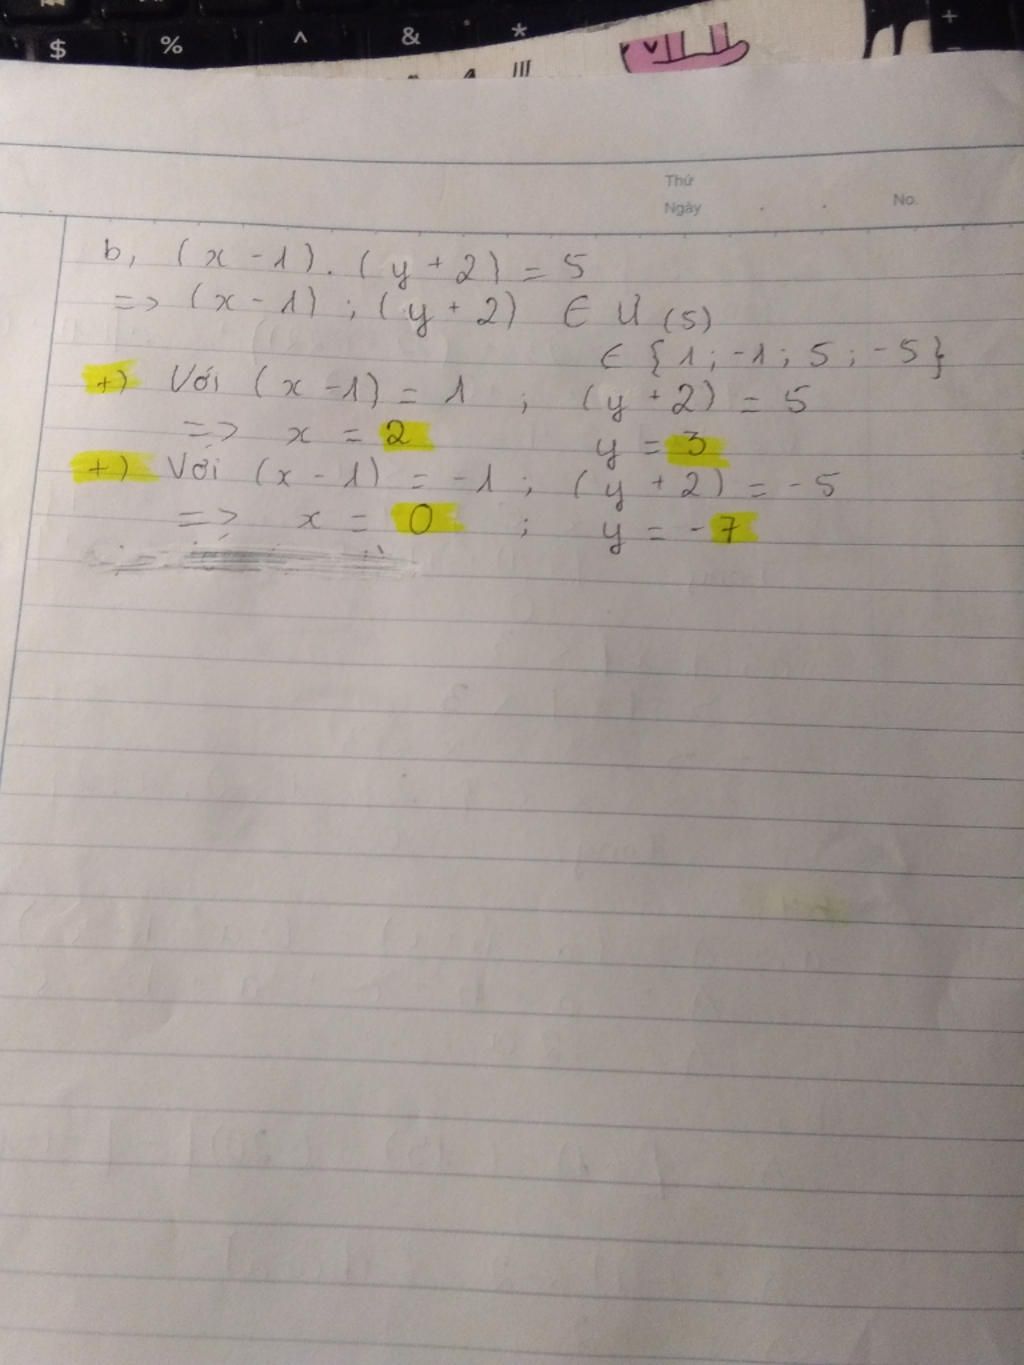 $ % ^ & * +
Thứ
Ngày . . No.
b, (x - 1) . (y + 2) = 5
=> (x - 1) ; (y + 2) ∈ Ư (5)
∈ {1 ; -1 ; 5 ; -5}
+) Với (x - 1) = 1 ; (y + 2) = 5
=> x = 2 y = 3
+) Với (x - 1) = -1 ; (y + 2) = -5
=> x = 0 ; y = -7